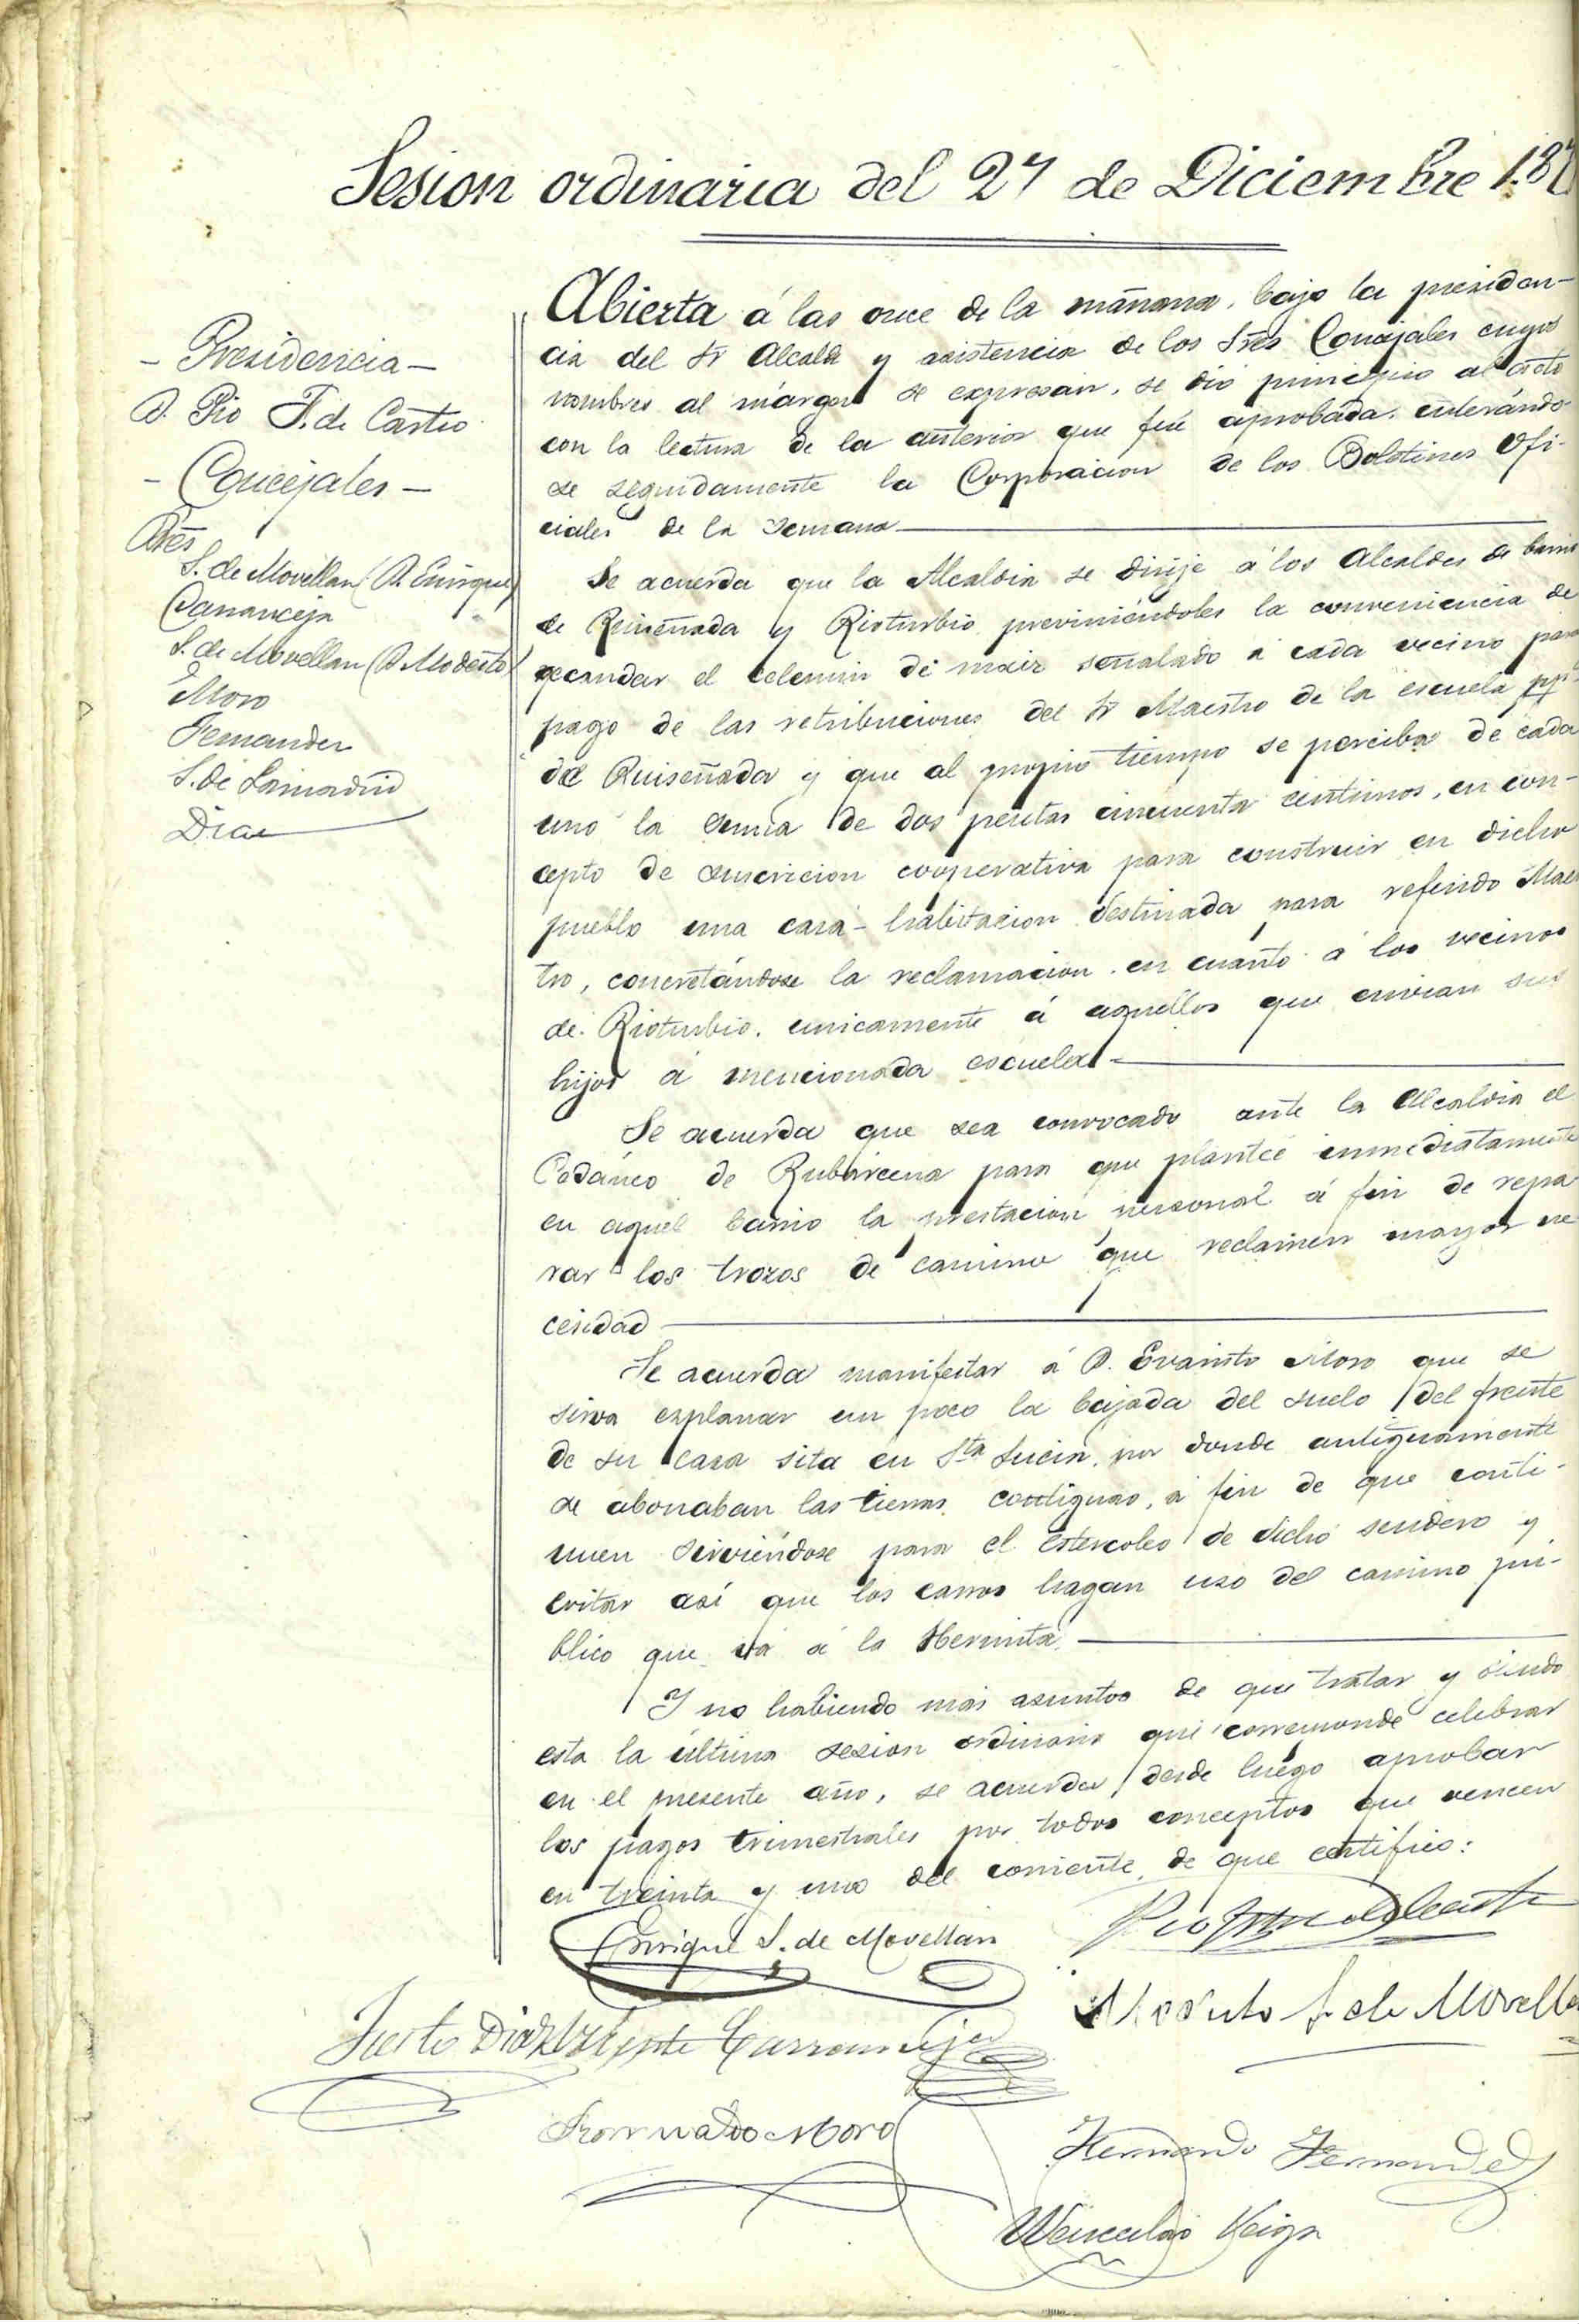 Sesion ordinaria del 27 de Diciembre 187
- Presidencia -
D. Pio F. de Castro
- Concejales -
Sres
S. de Movellan (D. Enrique)
Carranceja
S. de Movellan (D. Modesto)
Moro
Fernandez
S. de Lamadrid
Diaz
Abierta á las once de la mañana, bajo la presiden-
cia del Sr Alcalde y asistencia de los Sres Concejales cuyos
nombres al márgen se expresan, se dió principio al acto
con la lectura de la anterior que fué aprobada, enterándo-
se seguidamente la Corporacion de los Boletines Ofi-
ciales de la semana
Se acuerda que la Alcaldia se dirije á los Alcaldes de barrio
de Ruiseñada y Rioturbio previniéndoles la conveniencia de
recaudar el celemin de maiz señalado á cada vecino para
pago de las retribuciones del Sr Maestro de la escuela
de Ruiseñada y que al propio tiempo se perciba de cada
uno la suma de dos pesetas cincuenta centimos, en con-
cepto de suscricion cooperativa para construir en dicho
pueblo una casa-habitacion destinada para referido Maes
tro, concretándose la reclamacion en cuanto á los vecinos
de Rioturbio, unicamente á aquellos que envian sus
hijos á mencionada escuela -
Se acuerda que sea convocado ante la Alcaldia el
Pedáneo de Rubárcena para que plantée inmediatamente
en aquel barrio la prestacion personal á fin de repa
rar los trozos de camino que reclamen mayor ne
cesidad
Se acuerda manifestar á D. Evaristo Moro que se
sirva explanar un poco la bajada del suelo del frente
de su casa sita en Sta Lucia, por donde antiguamente
se abonaban las tierras contiguas, á fin de que conti-
nuen sirviéndose para el estercoleo de dicho sendero y
evitar así que los carros hagan uso del camino pú-
blico que vá á la Hermita.
Y no habiendo más asuntos de que tratar y siendo
esta la última sesion ordinaria que corresponde celebrar
en el presente año, se acuerda desde luego aprobar
los pagos trimestrales por todos conceptos que vencen
en treinta y uno del corriente, de que certifico:
Enrique S. de Movellan
Pio de Castro
Modesto S. de Movella
Justo Diaz Vicente Carranceja
Moro
Fernando Fernandez
Wenceslao Veiga